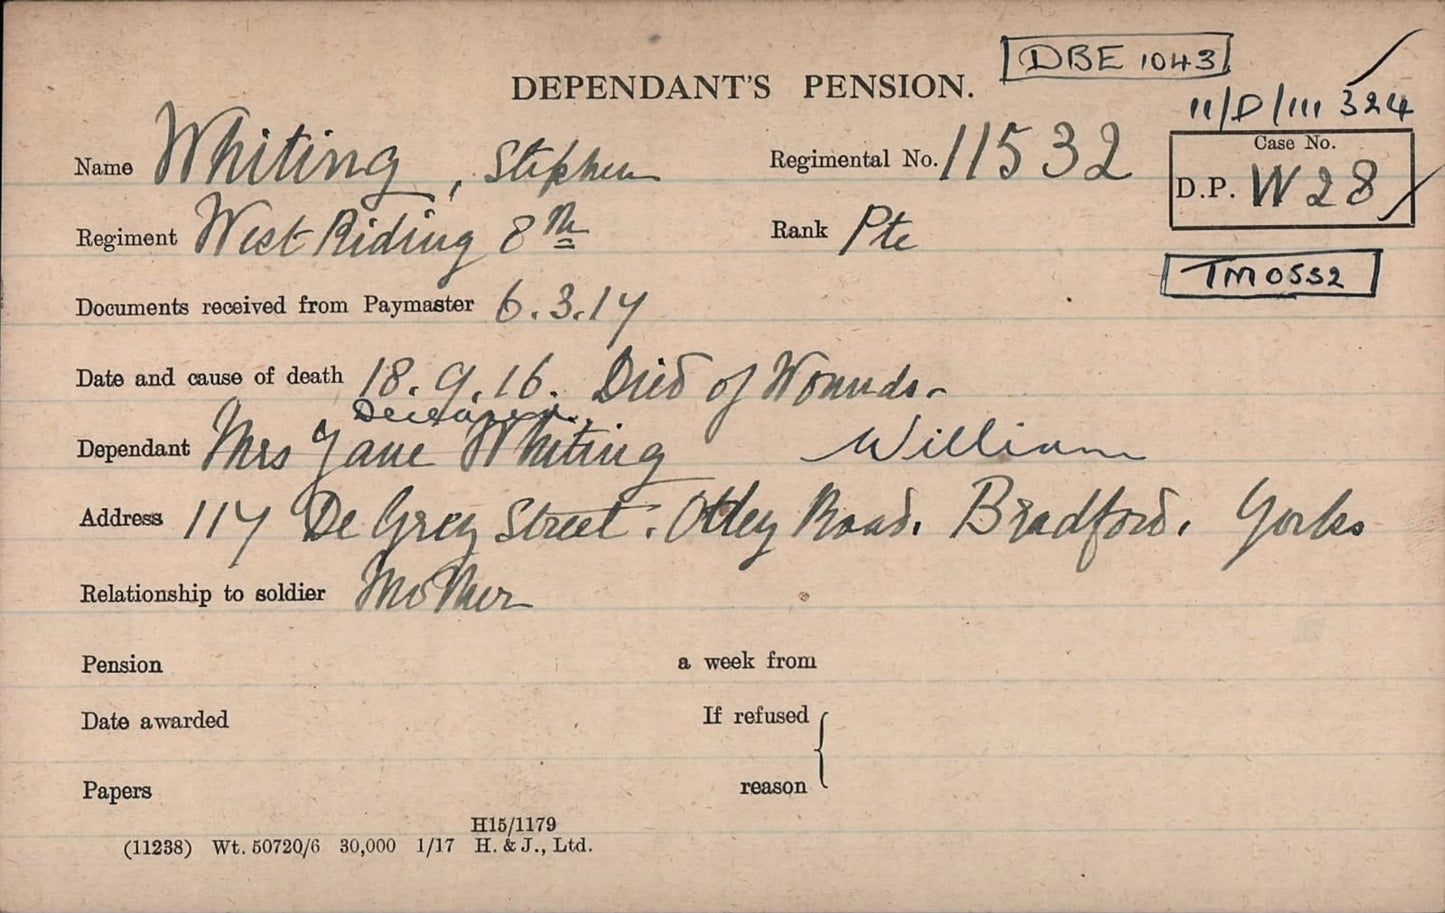 DBE 1043
DEPENDANT'S PENSION.
11/D/111 324
Name Whiting, Stephen Regimental No. 11532 Case No. D.P. W28
Regiment West Riding 8th Rank Pte
TM0532
Documents received from Paymaster 6.3.17
Date and cause of death 18.9.16. Died of Wounds.
Deceased.
Dependant Mrs Jane Whiting William
Address 117 De Grey Street. Otley Road. Bradford. Yorks
Relationship to soldier Mother
Pension a week from
Date awarded If refused
Papers reason
H15/1179
(11238) Wt. 50720/6 30,000 1/17 H. & J., Ltd.